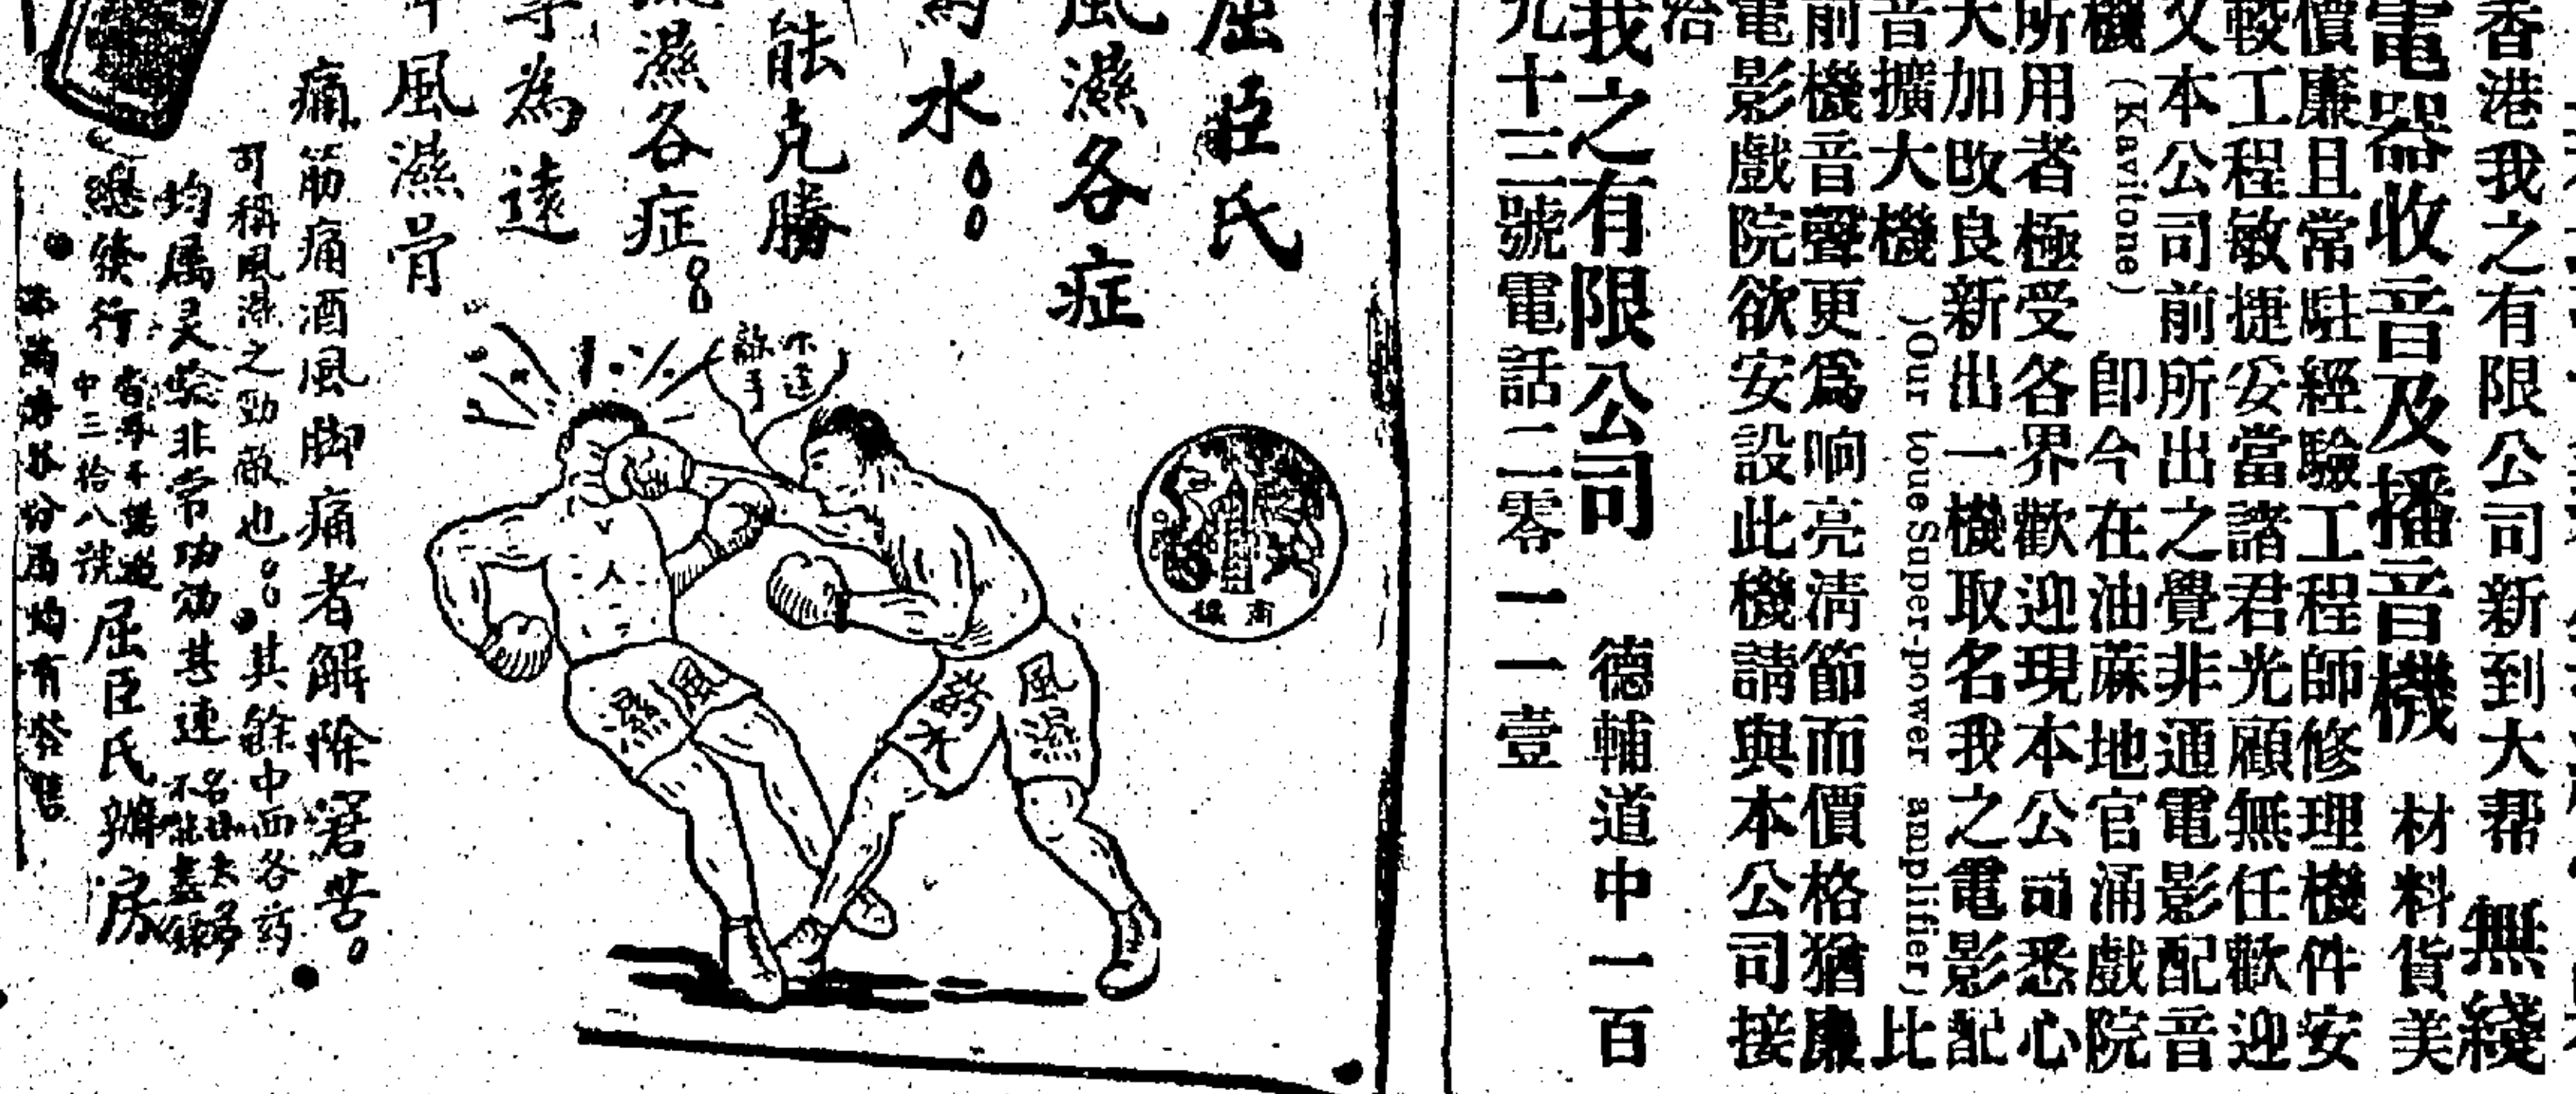 香港我之有限公司新到大帮 無綫
電器收音及播音機 材料貨美
價廉且常駐經驗工程師修理機件安
較工程敏捷妥當諸君光顧無任歡迎
又本公司前所出之覺非通電影配音
機 (Kavitone) 卽今在油蔴地官涌戲院
所用者極受各界歡迎現本公司悉心
大加改良新出一機取名我之電影配
音擴大機 )Our toue Super-power amplifier) 比
前機音聲更爲响亮淸節而價格猶廉
電影戲院欲安設此機請與本公司接
洽
我之有限公司 德輔道中一百
九十三號電話二零一一壹
屈臣氏
風濕各症
水。
能克勝
濕各症。
為遠
風濕骨
痛筋痛酒風脚痛者解除窘苦。
可稱風濕之勁敵也。其餘中西各药
均属灵驗非常功効其速
總發行
中三拾八號
屈臣氏藥房
均有發售
風濕
風濕